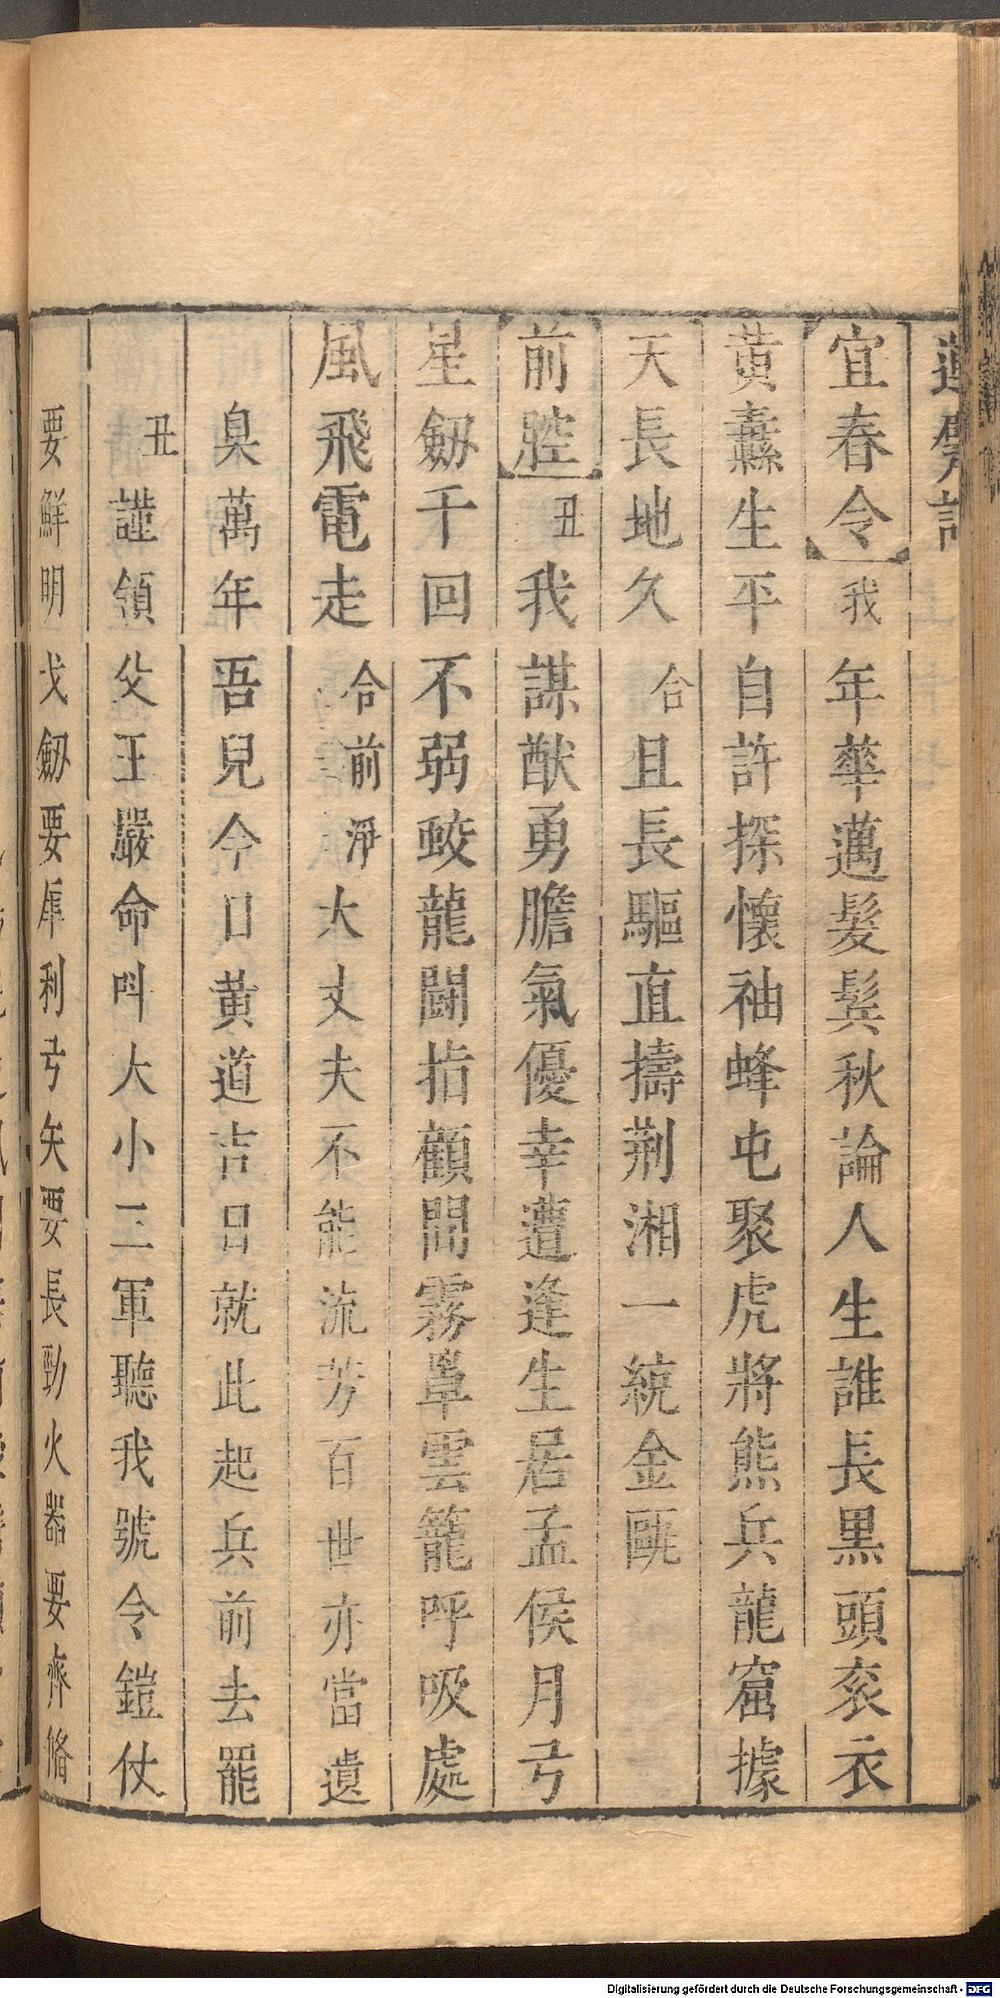 宜春令我年華邁髮鬓秋論人生誰長黑頭衮衣
黃纛生平自許探懷袖蜂屯聚虎將熊兵龍窟據
天長地久合且長驅直擣荆湘一統金甌
前腔丑我謀猷勇膽氣優幸遭逢生居孟侯月弓
星劒千回不弱蛟龍鬭指顧間霧罩雲籠呼吸處
風飛電走合前淨大丈夫不能流芳百世亦當遺
臭萬年吾兒今日黃道吉日就此起兵前去罷
丑謹領父王嚴命叫大小三軍聽我號令鎧仗
要鮮明戈劒要犀利弓矢要長勁火器要齊備
Digitalisierung gefördert durch die Deutsche Forschungsgemeinschaft - DFG